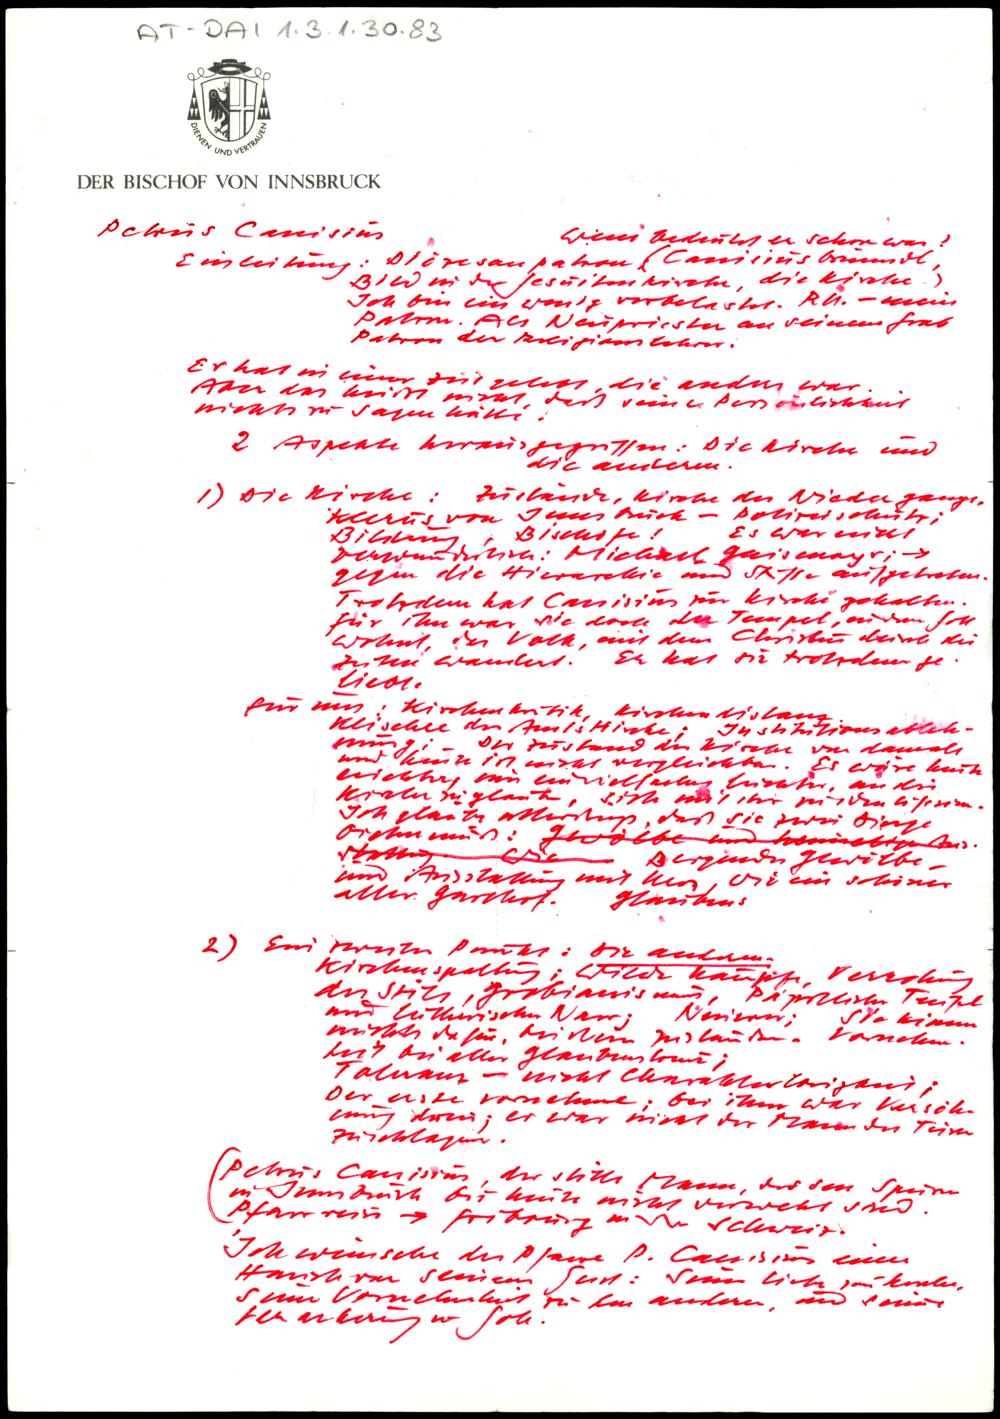 AT-DAI 1.3.1.30.83
DIENEN UND VERTRAUEN
DER BISCHOF VON INNSBRUCK
Petrus Canisius
Wem bedeutet er schon was?
Einleitung: Diözesanpatron (Canisiusbründl,
Bild in der Jesuitenkirche, die Kirche)
Ich bin ein wenig vorbelastet. Rh. – mein
Patron. Als Neupriester an seinem Grab
Patron der Religionslehrer.
Er hat in einer Zeit gelebt, die anders war.
Aber das heißt nicht, daß seine Persönlichkeit
nichts zu sagen hätte.
2 Aspekte herausgegriffen: Die Kirche und
die anderen.
1) Die Kirche: Zustände, Kirche des Niedergangs,
Klerus von Innsbruck – Polizeischutz;
Bildung, Bischöfe! Es war nicht
verwunderlich: Michael Gaismayr; →
gegen die Hierarchie und Stifte aufgetreten.
Trotzdem hat Canisius zur Kirche gehalten.
Für ihn war sie doch der Tempel, in dem Gott
wohnt, das Volk, mit dem Christus durch die
Zeiten wandert. Er hat sie trotzdem ge-
liebt.
Für uns: Kirchenkritik, Kirchendistanz
Klischee der Amtskirche; Institutionsableh-
nung; – Der Zustand der Kirche von damals
und heute ist nicht vergleichbar. Es wäre heute
wichtig, um ein vielfaches leichter, an die
Kirche zu glauben, sich mit ihr zu identifizieren.
Ich glaube allerdings, daß sie zwei Dinge
bieten muß: Gewölbe und
wie Bergendes Gewölbe –
und Ausstattung mit Herz, wie ein schöner
alter Gasthof. Glaubens
2) Ein zweiter Punkt: Die anderen.
Kirchenspaltung; Wilde Kämpfe, Verrohung
des Stils, Grobianismus, Päpstlicher Teufel
und lutherischer Narr; Sie können
nichts dafür, bei diesen Zuständen. Vornehm-
heit bei aller Glaubenstreue;
Toleranz – nicht Charakterlosigkeit;
Der erste vornehme; bei ihm war Versöh-
nung drin; er war nicht der Mann des Türen
zuschlagens.
(Petrus Canisius, der stille Mann, dessen Spuren
in Innsbruck bis heute nicht verweht sind.
→ Fribourg in der Schweiz.
Ich wünsche der Pfarre P. Canisius einen
Hauch von seinem Geist: Seine Liebe zur Kirche,
Seine Vornehmheit zu den anderen, und seine
Verankerung in Gott.